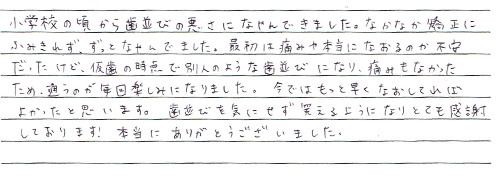 小学校の頃から歯並びの悪さになやんできました。なかなか矯正に
ふみきれず、ずっとなやんでました。最初は痛みや本当になおるのか不安
だったけど、仮歯の時点で別人のような歯並びになり、痛みもなかった
ため、通うのが毎回楽しみになりました。今ではもっと早くなおしてれば
よかったと思います。歯並びを気にせず笑えるようになりとても感謝
しております!本当にありがとうございました。